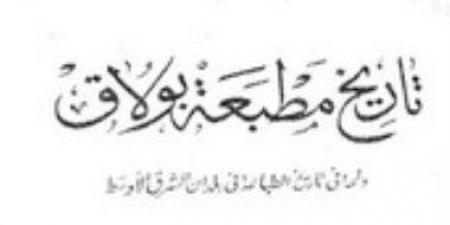 تاريخ مطبعة بولاق
ولمحة في تاريخ الطباعة في بلدان الشرق الأوسط